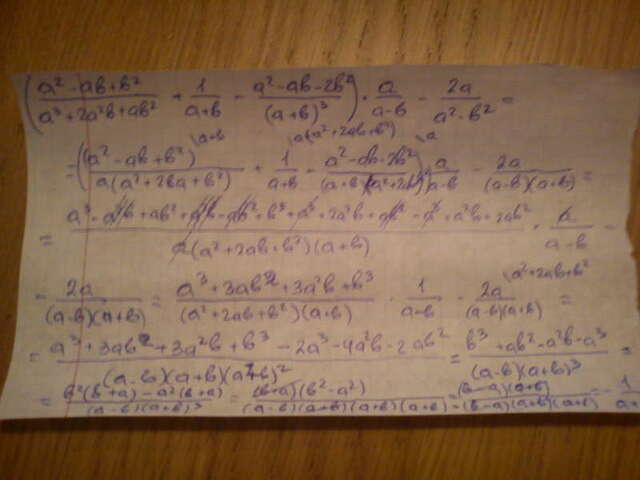 ( (a² - ab + b²)/(a³ + 2a²b + ab²) + 1/(a+b) - (a² - ab - 2b²)/(a+b)³ ) · a/(a-b) - 2a/(a² - b²) =
= ( (a² - ab + b²)/(a(a² + 2ba + b²)) \a+b + 1/(a+b) \a(a² + 2ab + b²) - (a² - ab - 2b²)/((a+b)(a² + 2ab + b²)) \a ) a/(a-b) - 2a/((a-b)(a+b)) =
= (a³ - a²b + ab² + a²b - ab² + b³ + a³ + 2a²b + ab² - a³ + a²b + 2ab²)/(a(a² + 2ab + b²)(a+b)) · a/(a-b) -
- 2a/((a-b)(a+b)) = (a³ + 3ab² + 3a²b + b³)/((a² + 2ab + b²)(a+b)) · 1/(a-b) - 2a/((a-b)(a+b)) \a² + 2ab + b² =
= (a³ + 3ab² + 3a²b + b³ - 2a³ - 4a²b - 2ab²)/((a-b)(a+b)(a+b)²) = (b³ + ab² - a²b - a³)/((a-b)(a+b)³) =
= (b²(b+a) - a²(b+a))/((a-b)(a+b)³) = ((b+a)(b² - a²))/((a-b)(a+b)(a+b)(a+b)) = ((b-a)(a+b))/((b-a)(a+b)(a+b)) = - 1/(a+